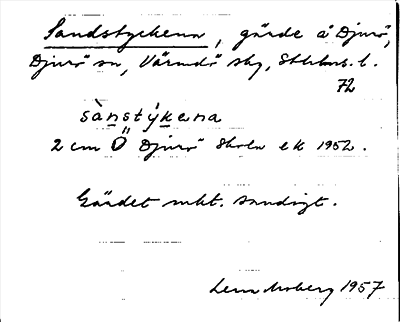 Sandstyckena, gärde å Djurö,
Djurö sn, Värmdö skg, Sthlms l.
72
sànstýkena
2 cm Ö Djurö skola ek 1952.
Gärdet mkt. sandigt.
Moberg 1957